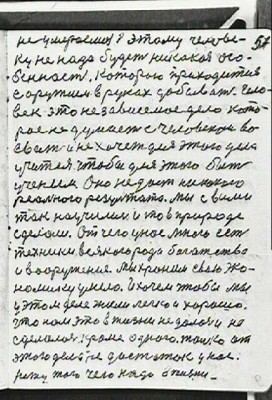 не умираешь? Этому челове-
ку не надо будет никакой осо-
бенност. которою приходится
с оружием в руках добывать. Чело-
век это независемое дело кото-
рое не думает с человеком во
своём и не хочет для этого дела
учится чтобы для этого быть
учеником. Оно не даст никакого
реального результата. Мы с вами
так научились и то в природе
сделали. От чего у нас много ест
техники всякого рода богатства
и вооружение. Мы храним свою эко-
номику умело. И хочем чтобы мы
у этом деле жили легко и хорошо.
Что нам это в жизни не далось и не
сделалось. Кроме одного, только от
этого дела не достаток у нас.
того чего надо в жизни.
57